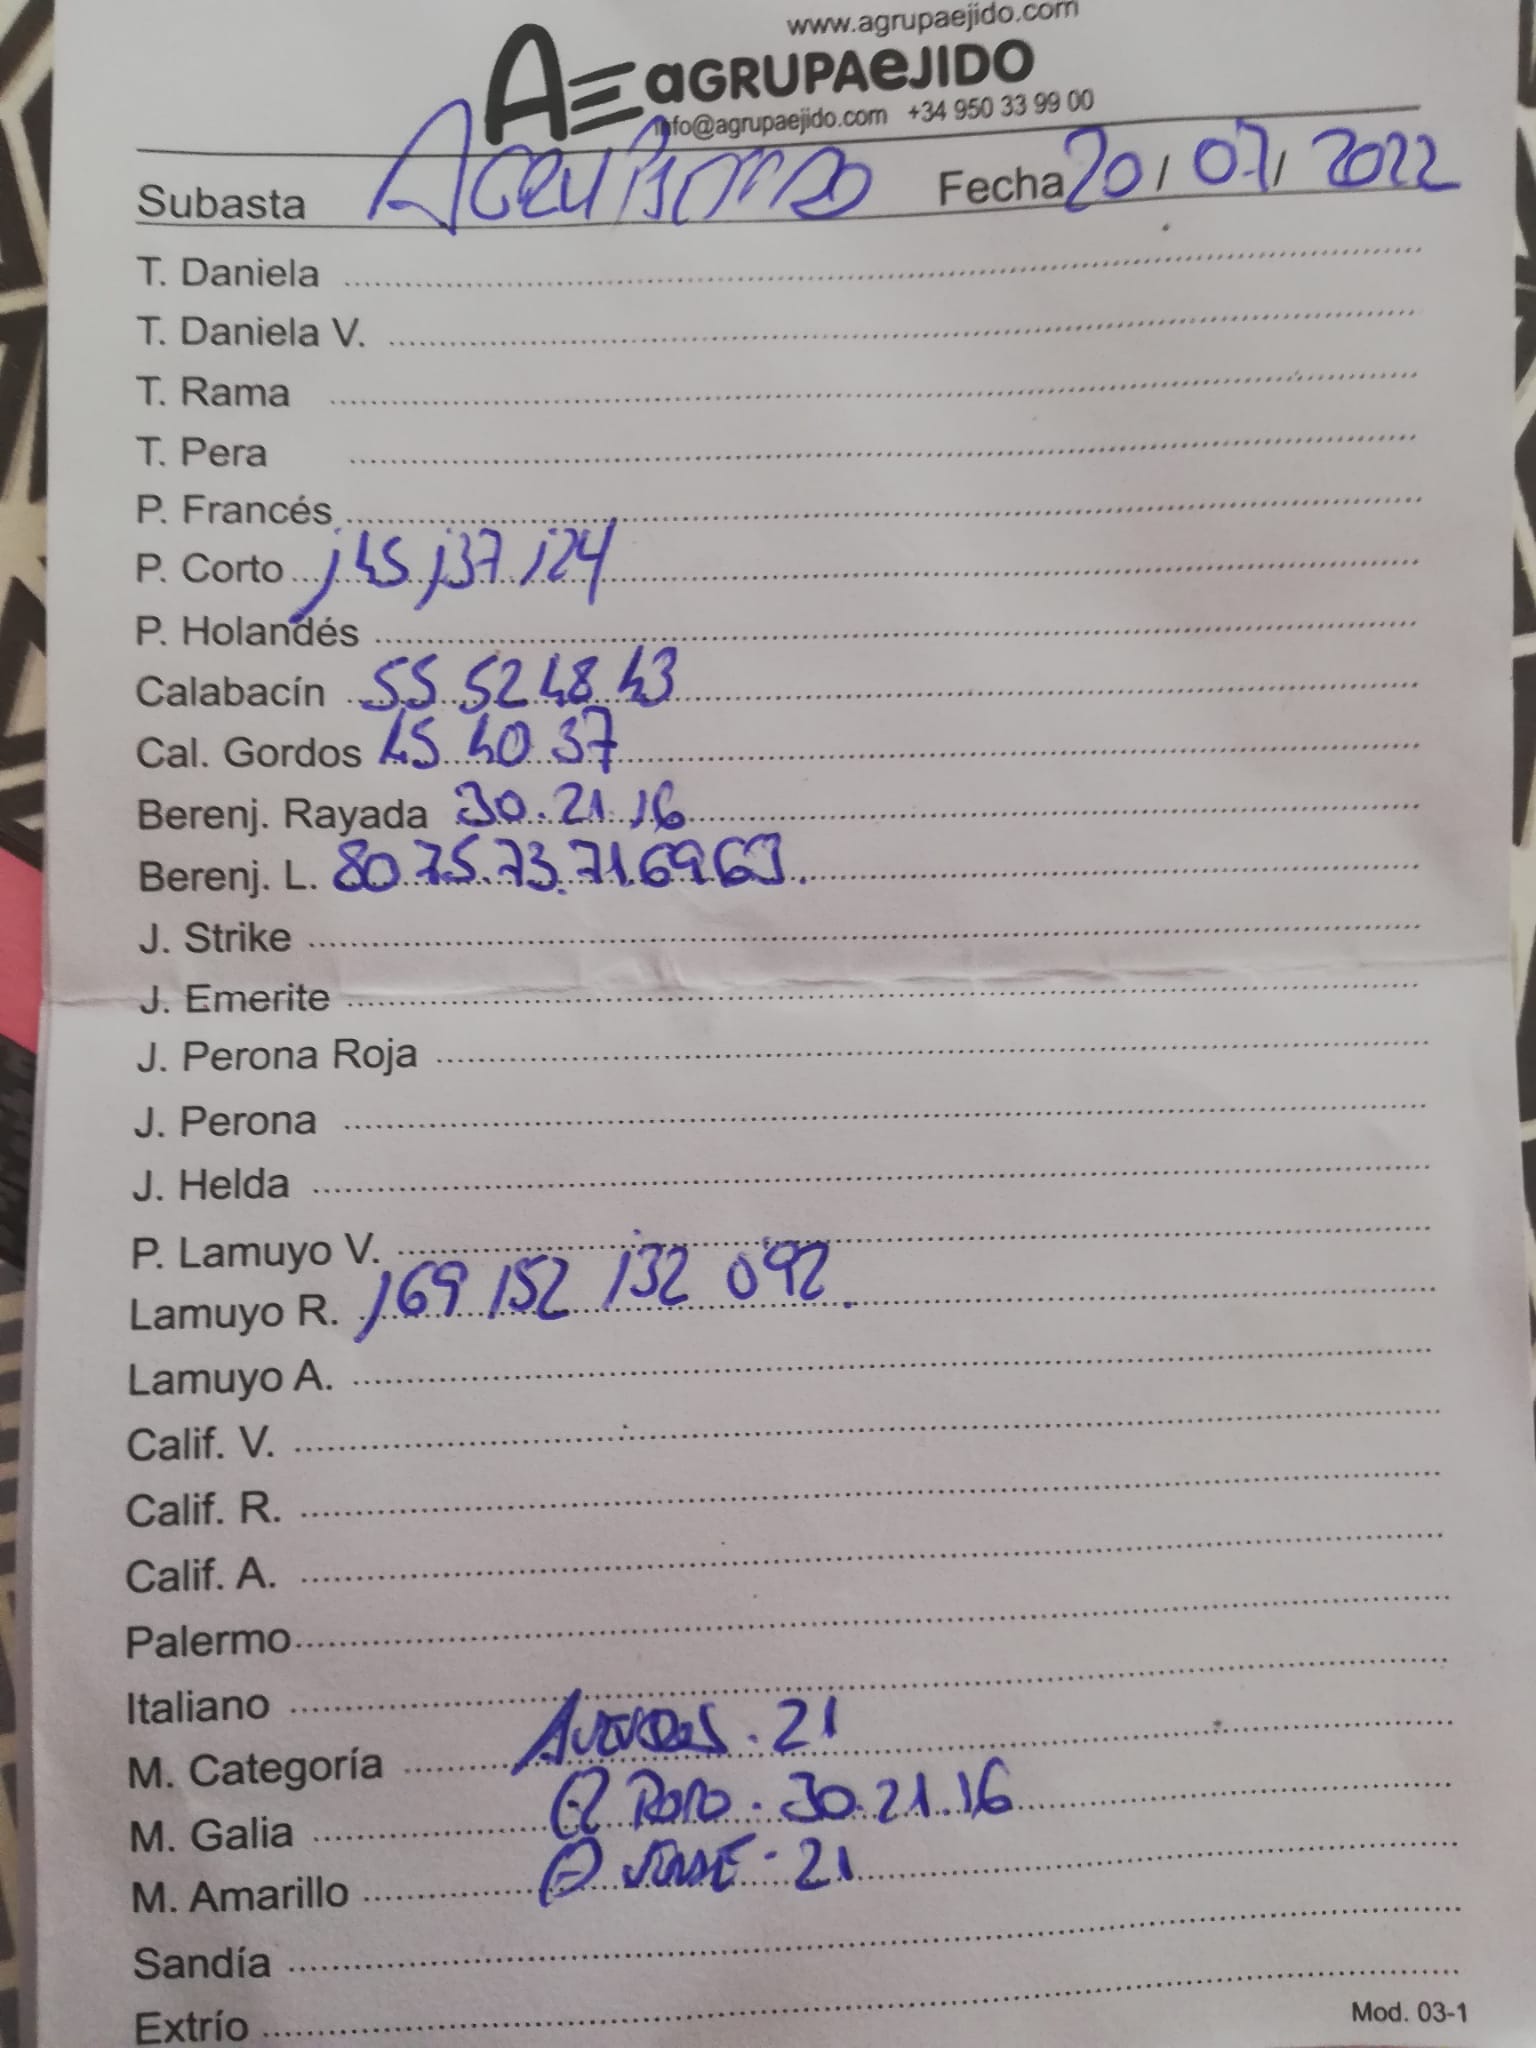 www.agrupaejido.com
AE aGRUPAeJIDO
info@agrupaejido.com +34 950 33 99 00
Subasta Fecha 20/07/2022
T. Daniela
T. Daniela V.
T. Rama
T. Pera
P. Francés
P. Corto 145 137 124
P. Holandés
Calabacín 55 52 48 43
Cal. Gordos 45 40 37
Berenj. Rayada 30.21.16
Berenj. L. 80.75.73.71.69 63.
J. Strike
J. Emerite
J. Perona Roja
J. Perona
J. Helda
P. Lamuyo V.
Lamuyo R. 169 152 132 092.
Lamuyo A.
Calif. V.
Calif. R.
Calif. A.
Palermo
Italiano
M. Categoría . 21
M. Galia P Rojo. 30.21.16
M. Amarillo P VERDE. 21
Sandía
Extrío
Mod. 03-1